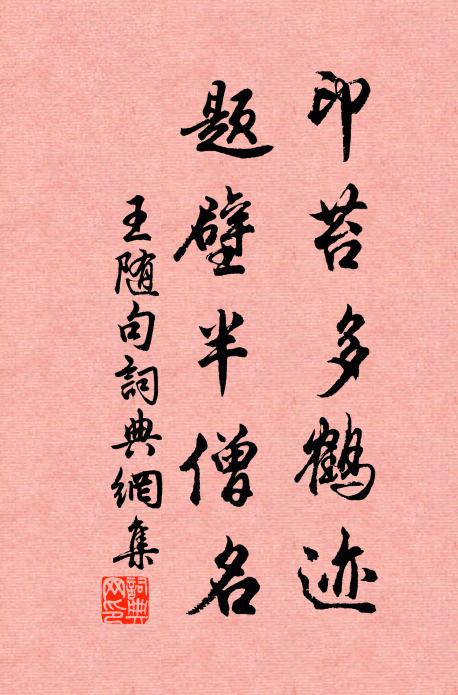 印苔多鹤迹
题壁半僧名
王随句詞典網集
詞典网印